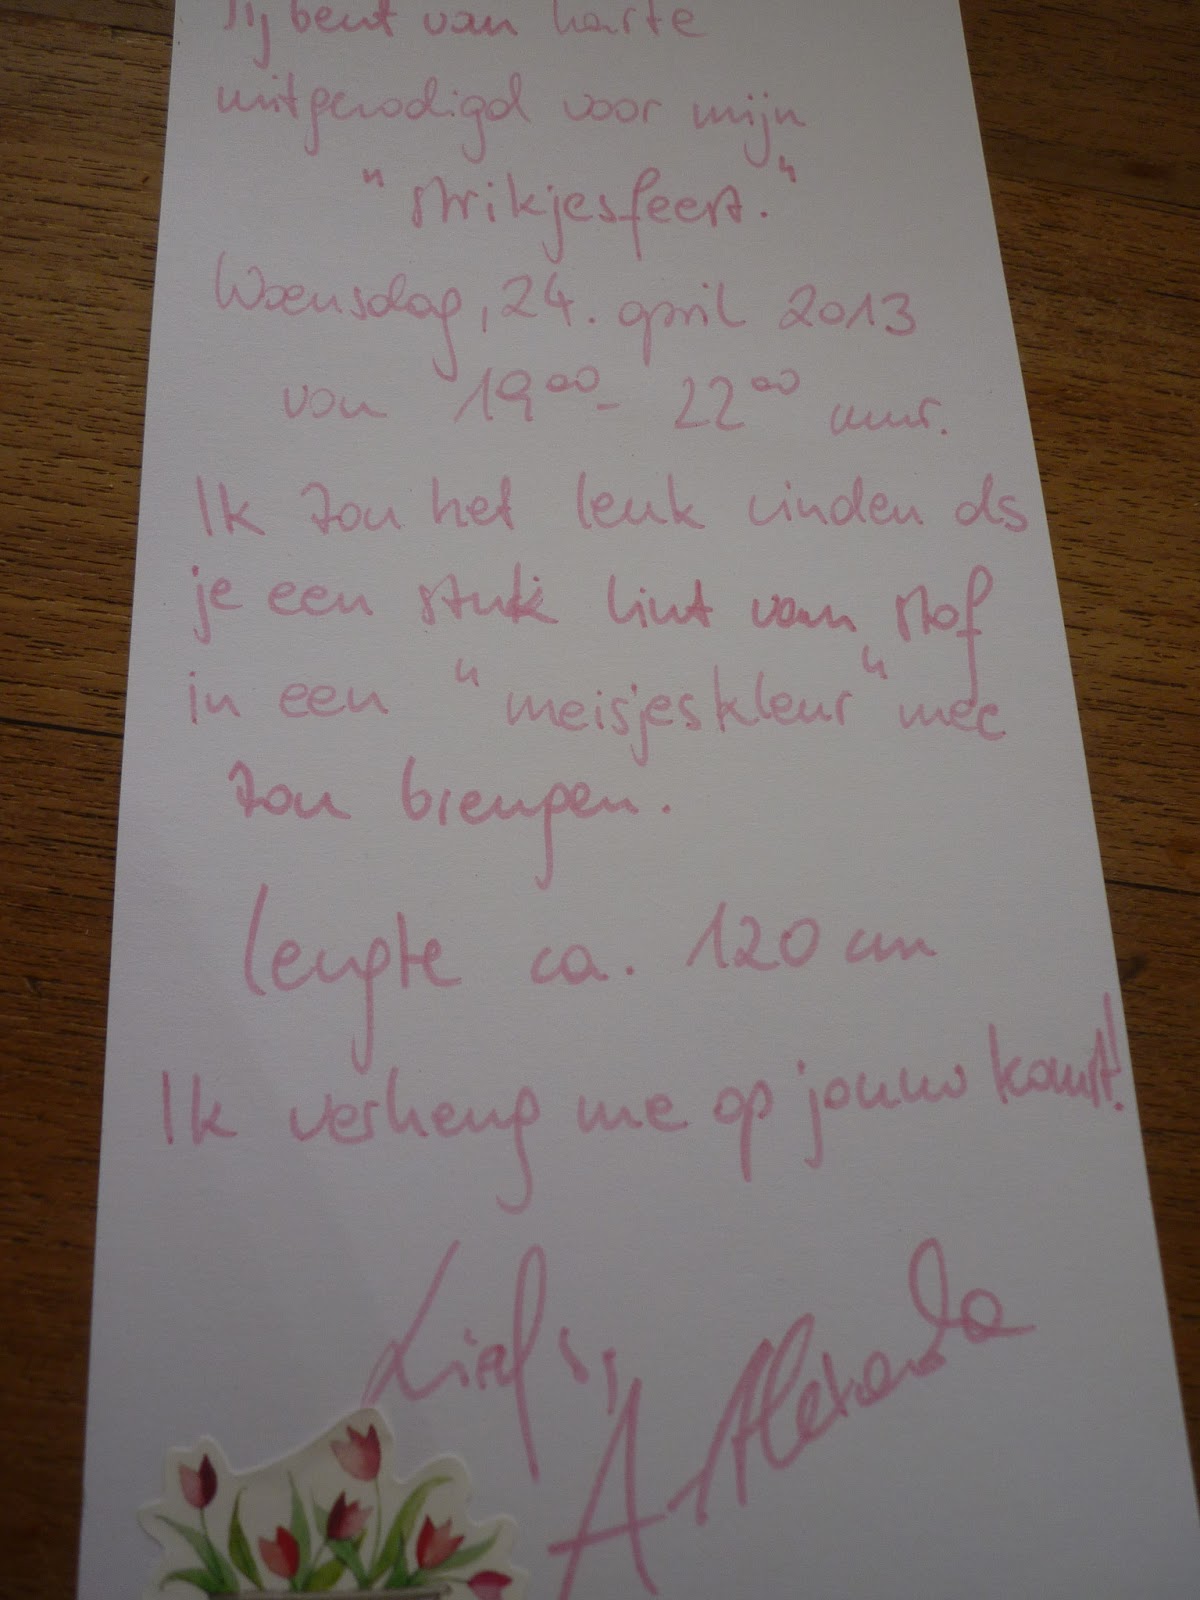 Jij bent van harte
uitgenodigd voor mijn
"strikjesfeest."
Woensdag, 24. april 2013
van 19⁰⁰ - 22⁰⁰ uur.
Ik zou het leuk vinden als
je een stuk lint van stof
in een "meisjeskleur" mee
zou brengen.
lengte ca. 120 cm
Ik verheug me op jouw komst!
Liefs,
Alexandra